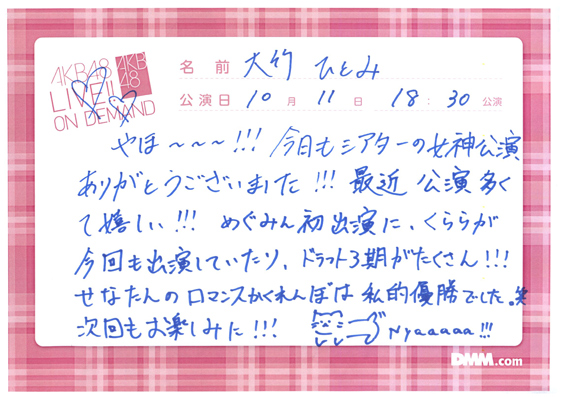 AKB48
LIVE!!
ON DEMAND
AKB
48
名前 大竹 ひとみ
公演日 10月 11日 18:30 公演
やほ〜〜〜!!! 今日もシアターの女神公演
ありがとうございました!!! 最近 公演多く
て嬉しい!!! めぐみん初出演に、くららが
今回も出演していたり、ドラフト3期がたくさん!!!
せなたんのロマンスかくれんぼは 私的優勝でした。笑
次回もお楽しみに!!! Nyaaaaa!!!
DMM.com